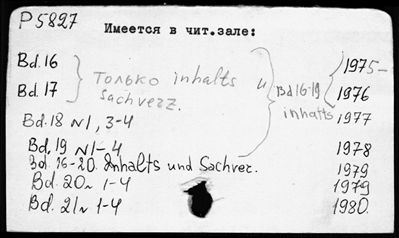 P 5827
Имеется в чит.зале:
Bd. 16 1975-
Bd. 17 Только inhalts и Bd 16-19 1976
Sachverz. inhalts
Bd. 18 N 1, 3-4 1977
Bd. 19 N 1-4 1978
Bd. 16-20. Inhalts und Sachver. 1979
Bd. 20 N 1-4 1979
Bd. 21 N 1-4 1980.